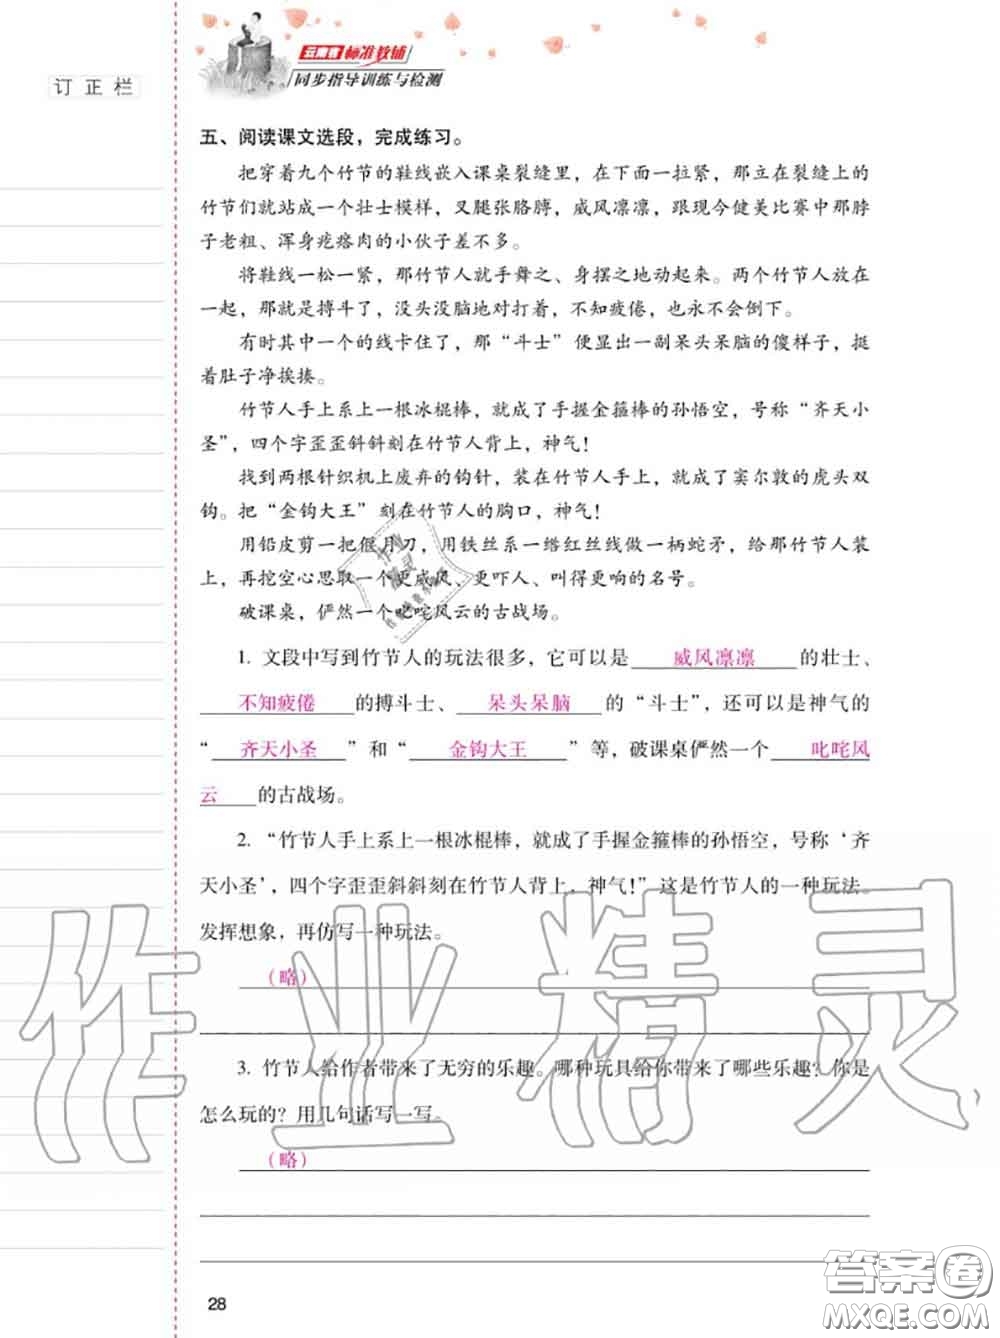 订正栏
云南省标准教辅
同步指导训练与检测
五、阅读课文选段，完成练习。
把穿着九个竹节的鞋线嵌入课桌裂缝里，在下面一拉紧，那立在裂缝上的
竹节们就站成一个壮士模样，叉腿张胳膊，威风凛凛，跟现今健美比赛中那脖
子老粗、浑身疙瘩肉的小伙子差不多。
将鞋线一松一紧，那竹节人就手舞之、身摆之地动起来。两个竹节人放在
一起，那就是搏斗了，没头没脑地对打着，不知疲倦，也永不会倒下。
有时其中一个的线卡住了，那“斗士”便显出一副呆头呆脑的傻样子，挺
着肚子净挨揍。
竹节人手上系上一根冰棍棒，就成了手握金箍棒的孙悟空，号称“齐天小
圣”，四个字歪歪斜斜刻在竹节人背上，神气！
找到两根针织机上废弃的钩针，装在竹节人手上，就成了窦尔敦的虎头双
钩。把“金钩大王”刻在竹节人的胸口，神气！
用铅皮剪一把偃月刀，用铁丝系一绺红丝线做一柄蛇矛，给那竹节人装
上，再挖空心思取一个更威风、更吓人、叫得更响的名号。
破课桌，俨然一个叱咤风云的古战场。
1. 文段中写到竹节人的玩法很多，它可以是 威风凛凛 的壮士、
不知疲倦 的搏斗士、 呆头呆脑 的“斗士”，还可以是神气的
“ 齐天小圣 ”和“ 金钩大王 ”等，破课桌俨然一个 叱咤风
云 的古战场。
2. “竹节人手上系上一根冰棍棒，就成了手握金箍棒的孙悟空，号称‘齐
天小圣’，四个字歪歪斜斜刻在竹节人背上，神气！”这是竹节人的一种玩法。
发挥想象，再仿写一种玩法。
（略）
3. 竹节人给作者带来了无穷的乐趣。哪种玩具给你带来了哪些乐趣？你是
怎么玩的？用几句话写一写。
（略）
28
作业精灵
答案圈
MXQE.COM